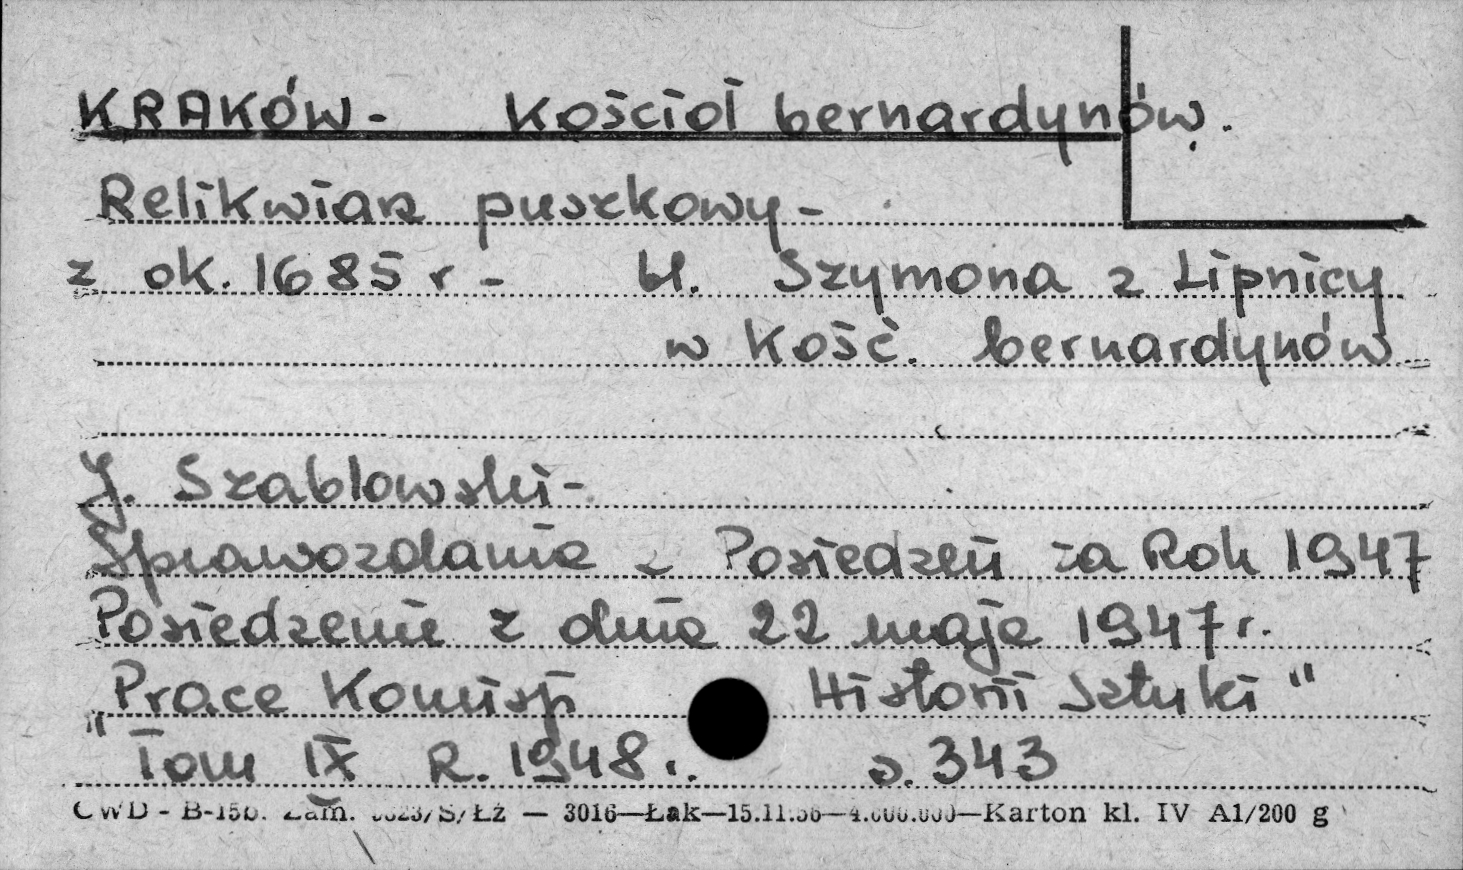 KRAKÓW - Kościoł bernardynów.
Relikwiarz puszkowy -
z ok. 1685 r - bł. Szymona z Lipnicy
w Kość. bernardynów
J. Szablowski -
Sprawozdanie z Posiedzeń za Rok 1947
Posiedzenie z dnia 22 maja 1947 r.
"Prace Komisji Historii Sztuki"
Tom IX R. 1948 r. s. 343
CWD - B-15b. Zam. /S/Łż — 3016—Łak—15.11.56—4.000.000—Karton kl. IV A1/200 g